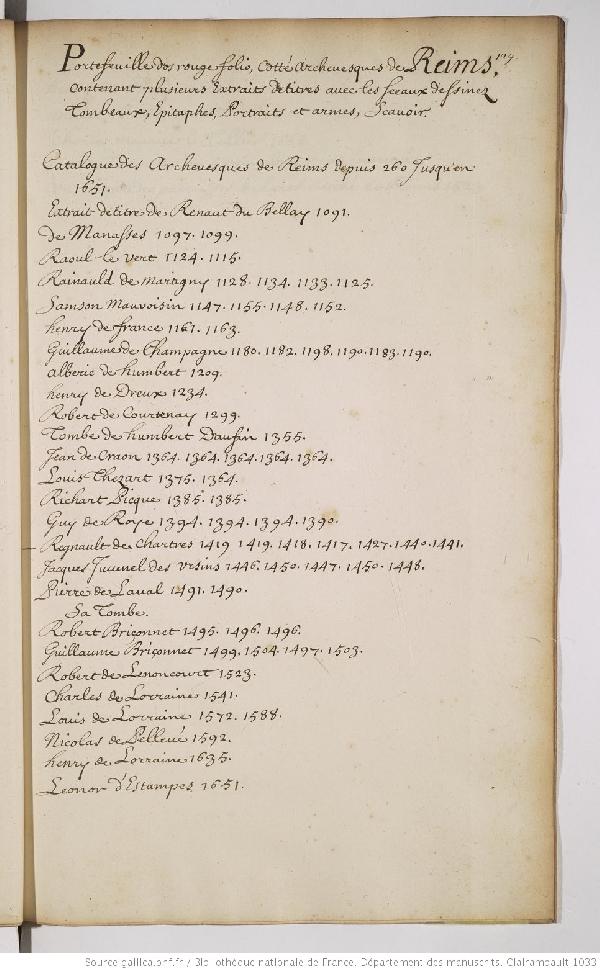 Portefeuille dos rouge folio, Cotté Archevesques de Reims,
Contenant plusieurs Extraits de titres avec les sceaux dessinez
Tombeaux, Epitaphes, Portraits et armes, Scavoir.
Catalogue des Archevesques de Reims depuis 260 Jusqu'en
1651.
Extrait de titre de Renaut du Bellay 1091.
de Manasses 1097. 1099.
Raoul le vert 1124. 1115.
Rainauld de martigny 1128. 1134. 1133. 1125.
Samson Mauvoisin 1147. 1155. 1148. 1152.
henry de france 1161. 1163.
Guillaume de Champagne 1180. 1182. 1198. 1190. 1183. 1190.
Alberic de humbert 1209.
henry de Dreux 1234.
Robert de Courtenay 1299.
Tombe de humbert Daufin 1355.
Jean de Craon 1364. 1364. 1364. 1364. 1364.
Louis Thezart 1375. 1364.
Richart Picque 1385. 1385.
Guy de Roye 1394. 1394. 1394. 1390.
Regnault de Chartres 1419. 1419. 1418. 1417. 1427. 1440. 1441.
Jacques Juvenel des vrsins 1446. 1450. 1447. 1450. 1448.
Pierre de Laval 1491. 1490.
Sa Tombe.
Robert Briçonnet 1495. 1496. 1496.
Guillaume Briçonnet 1499. 1504. 1497. 1503.
Robert de Lenoncourt 1523.
Charles de Lorraine 1541.
Louis de Lorraine 1572. 1588.
Nicolas de Pellevé 1592.
henry de Lorraine 1635.
Leonor d'Estampes 1651.
Source gallica.bnf.fr / Bibliothèque nationale de France. Département des manuscrits. Clairambault 1033